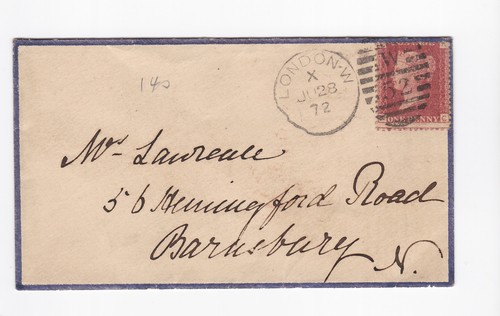 140
LONDON·W
X
JU 28
72
W
52
ONE PENNY
C
Mrs Lawrence
56 Hemingford Road
Barnsbury
N.